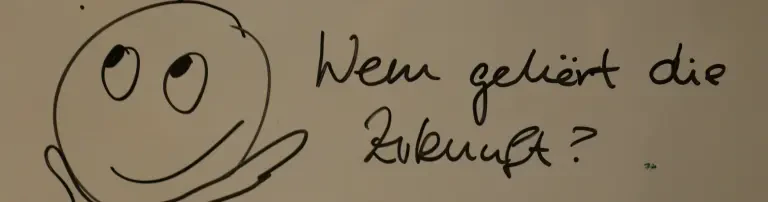 Wem gehört die
Zukunft?